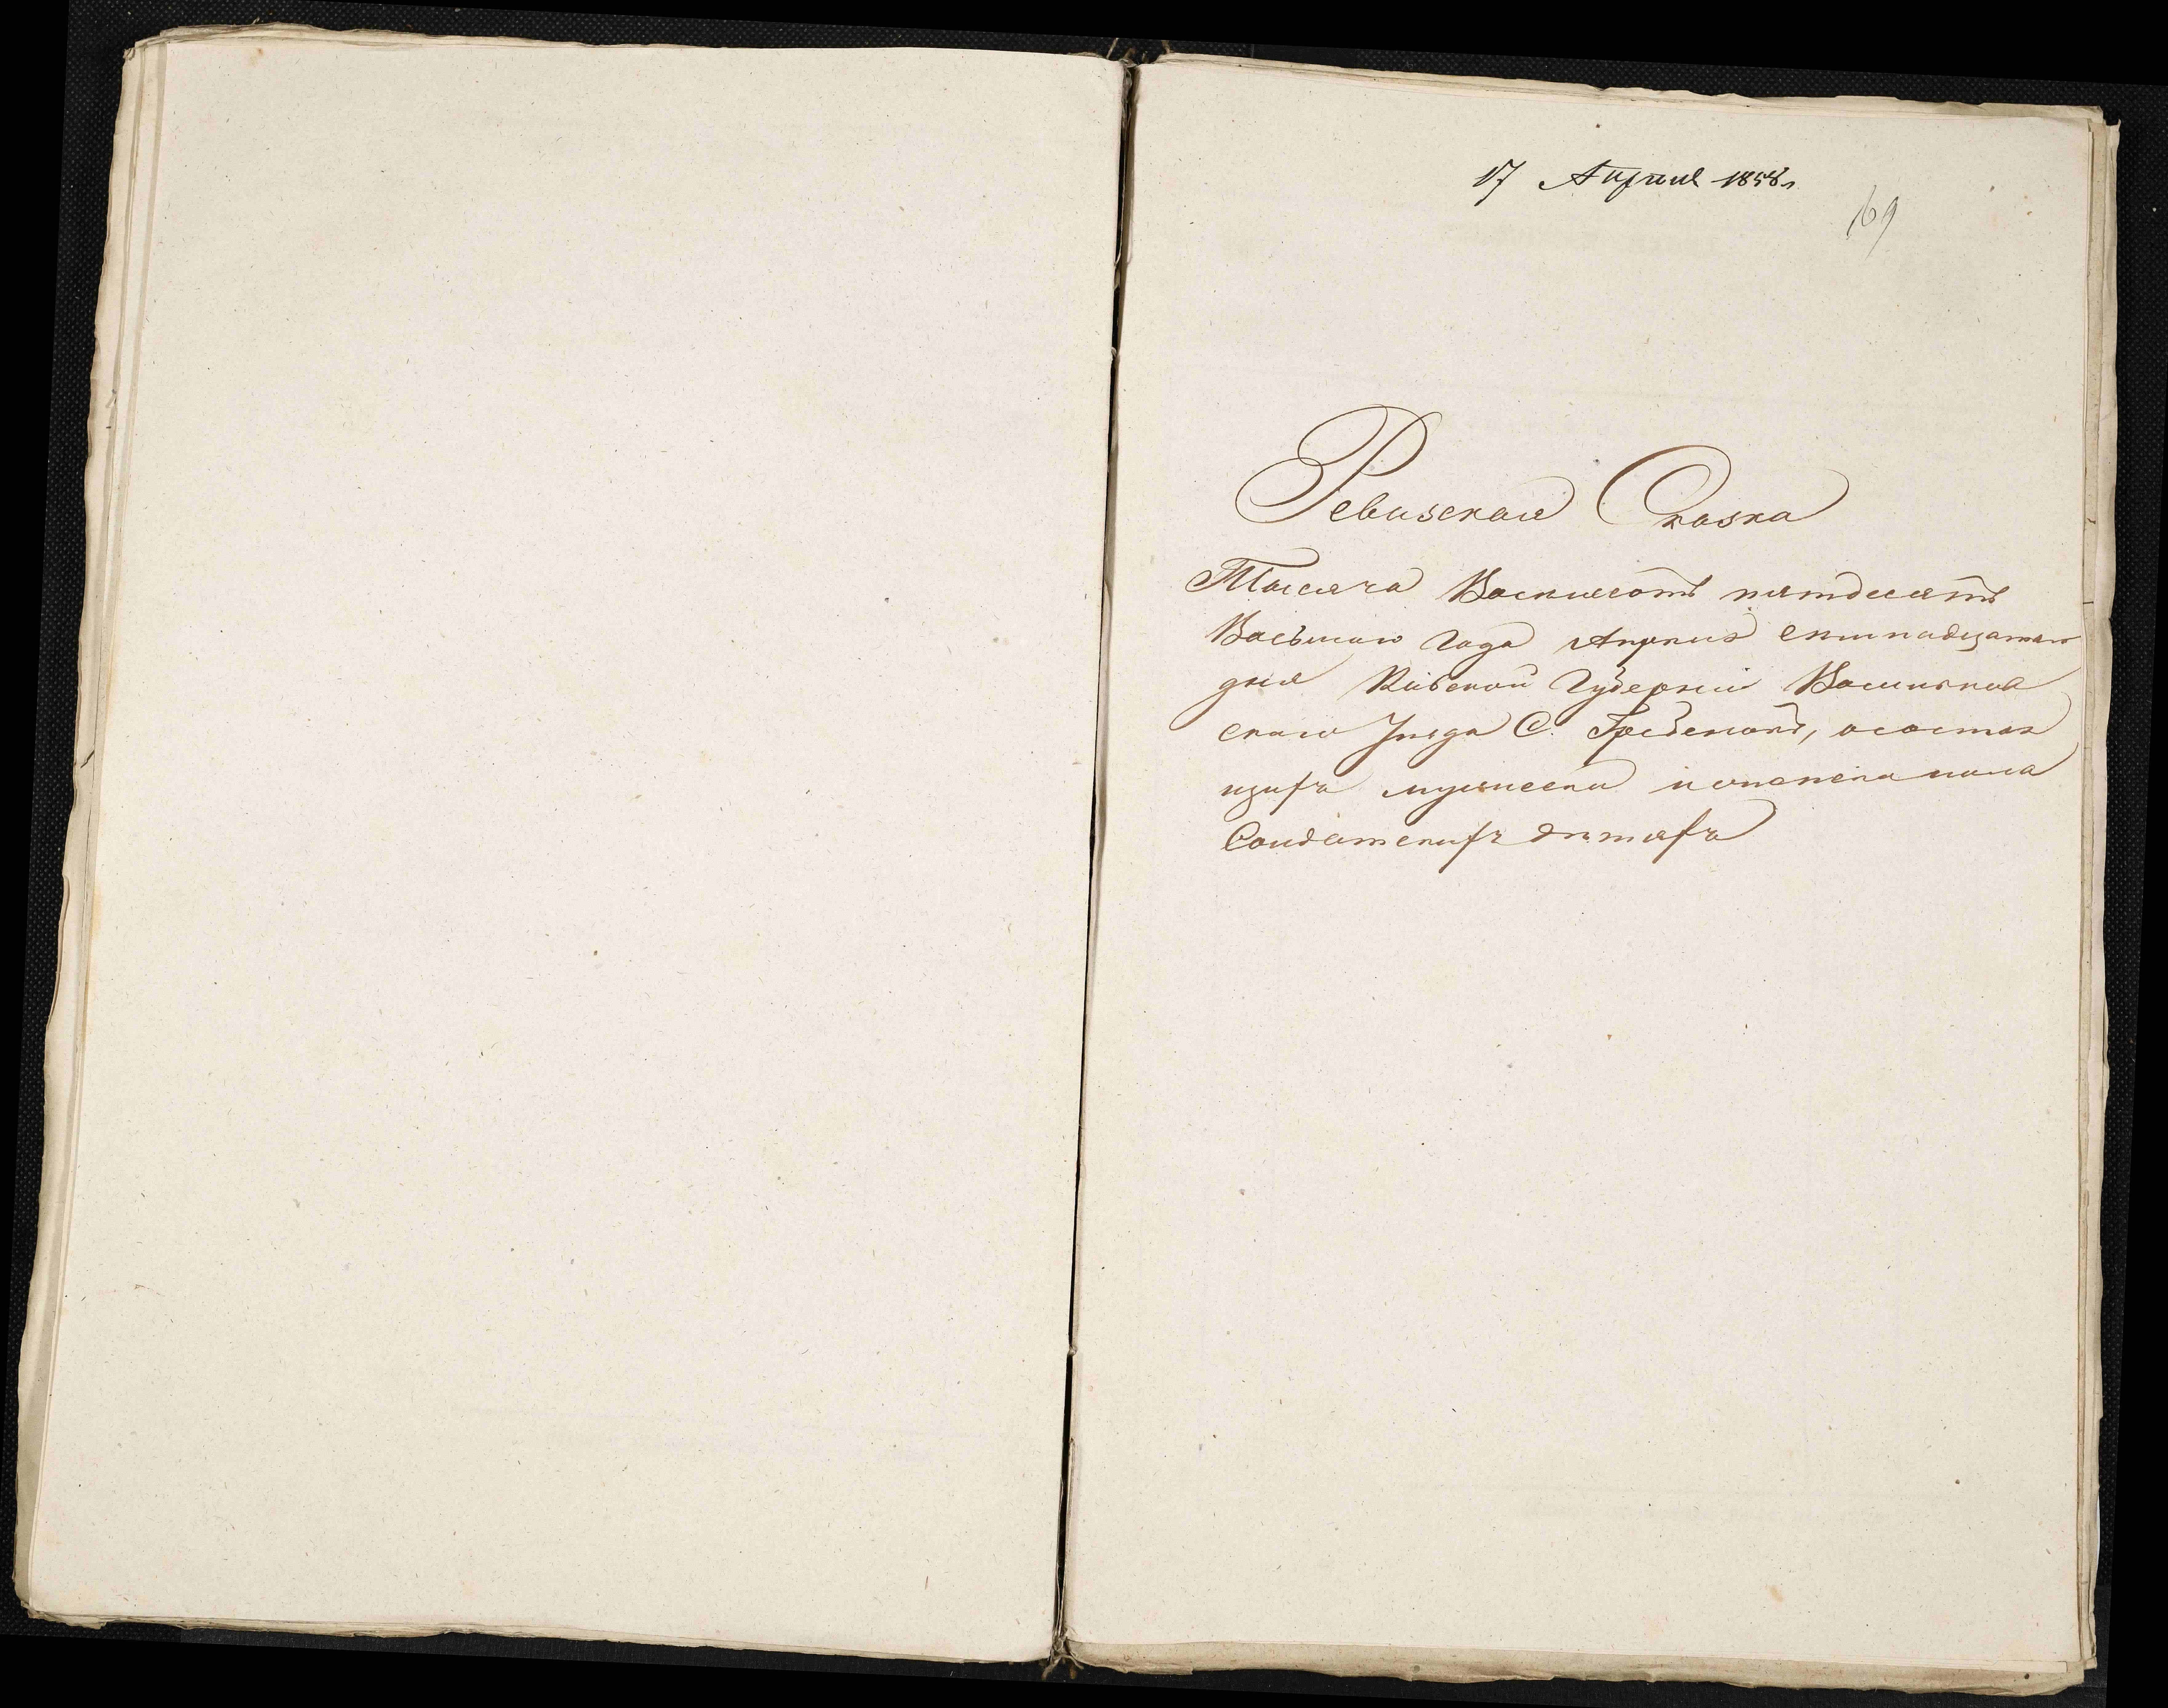 17 Апреля 1858 г
169
Ревизская Сказка
Тысяча Восемсотъ пятдесятъ
Восьмаго Года Апреля семнадцатаго
дня Киевской Губернии Васильков
скаго Уезда С. Гребенокъ, о состоя
щихъ мужеска и женска пола
Солдатскихъ детяхъ